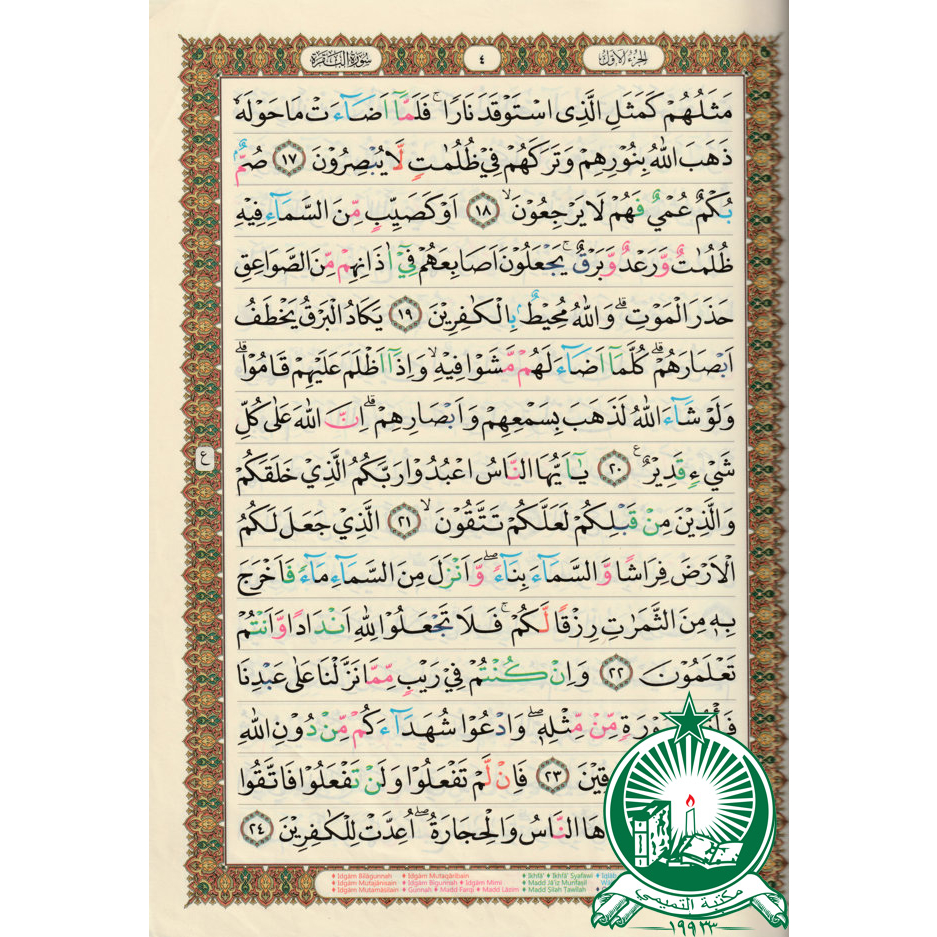 سُورَةُ الْبَقَرَة ٤ الجزء الاول
مَثَلُهُمْ كَمَثَلِ الَّذِى اسْتَوْقَدَ نَارًا ۚ فَلَمَّآ اَضَآءَتْ مَا حَوْلَهٗ
ذَهَبَ اللّٰهُ بِنُوْرِهِمْ وَتَرَكَهُمْ فِيْ ظُلُمٰتٍ لَّا يُبْصِرُوْنَ ١٧ صُمٌّۢ
بُكْمٌ عُمْيٌ فَهُمْ لَا يَرْجِعُوْنَۙ ١٨ اَوْ كَصَيِّبٍ مِّنَ السَّمَآءِ فِيْهِ
ظُلُمٰتٌ وَّرَعْدٌ وَّبَرْقٌۚ يَجْعَلُوْنَ اَصَابِعَهُمْ فِيْٓ اٰذَانِهِمْ مِّنَ الصَّوَاعِقِ
حَذَرَ الْمَوْتِۗ وَاللّٰهُ مُحِيْطٌۢ بِالْكٰفِرِيْنَ ١٩ يَكَادُ الْبَرْقُ يَخْطَفُ
اَبْصَارَهُمْۗ كُلَّمَآ اَضَآءَ لَهُمْ مَّشَوْا فِيْهِۙ وَاِذَآ اَظْلَمَ عَلَيْهِمْ قَامُوْاۗ
وَلَوْ شَآءَ اللّٰهُ لَذَهَبَ بِسَمْعِهِمْ وَاَبْصَارِهِمْۗ اِنَّ اللّٰهَ عَلٰى كُلِّ
شَيْءٍ قَدِيْرٌ ࣖ ٢٠ يٰٓاَيُّهَا النَّاسُ اعْبُدُوْا رَبَّكُمُ الَّذِيْ خَلَقَكُمْ
وَالَّذِيْنَ مِنْ قَبْلِكُمْ لَعَلَّكُمْ تَتَّقُوْنَۙ ٢١ الَّذِيْ جَعَلَ لَكُمُ
الْاَرْضَ فِرَاشًا وَّالسَّمَآءَ بِنَآءًۖ وَّاَنْزَلَ مِنَ السَّمَآءِ مَآءً فَاَخْرَجَ
بِهٖ مِنَ الثَّمَرٰتِ رِزْقًا لَّكُمْۚ فَلَا تَجْعَلُوْا لِلّٰهِ اَنْدَادًا وَّاَنْتُمْ
تَعْلَمُوْنَ ٢٢ وَاِنْ كُنْتُمْ فِيْ رَيْبٍ مِّمَّا نَزَّلْنَا عَلٰى عَبْدِنَا
مِّنْ مِّثْلِهٖۖ وَادْعُوْا شُهَدَآءَكُمْ مِّنْ دُوْنِ اللّٰهِ
٢٣ فَاِنْ لَّمْ تَفْعَلُوْا وَلَنْ تَفْعَلُوْا فَاتَّقُوا
النَّاسُ وَالْحِجَارَةُۖ اُعِدَّتْ لِلْكٰفِرِيْنَ ٢٤
ع
Idgām Bilāgunnah Idgām Mutaqāribain Ikhfā' Ikhfā' Syafawi
Idgām Mutajānisain Idgām Bigunnah Idgām Mimi Madd Jā'iz Munfaṣil
Idgām Mutamāṡilain Gunnah Madd Farqi Madd Lāzim Madd Ṣilah Ṭawīlah
مكتبة التميمي
١٩٩٣٣